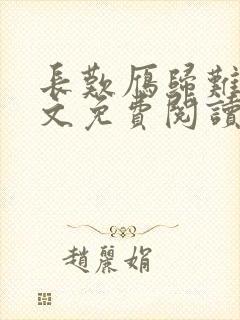 長歎雁歸難
文免費閱讀
趙麗娟